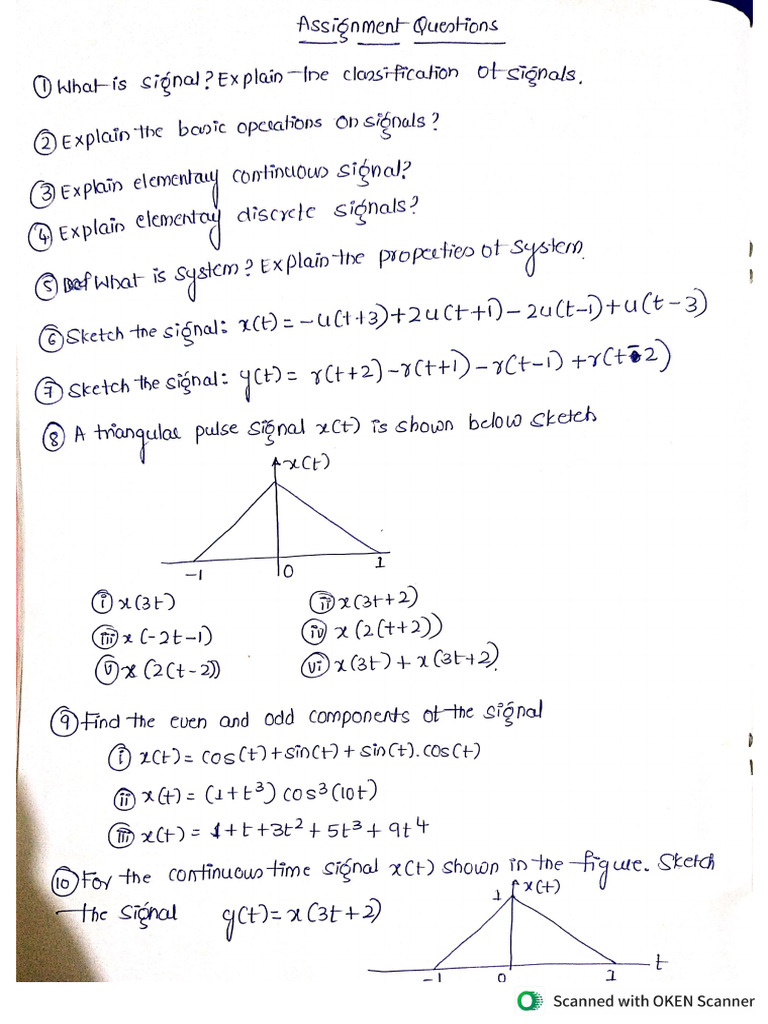 Assignment Questions
① What is signal? Explain the classification of signals.
② Explain the basic operations on signals?
③ Explain elementary continuous signal?
④ Explain elementay discrete signals?
⑤ What is system? Explain the properties of system.
⑥ Sketch the signal: x(t) = -u(t+3)+2u(t+1)-2u(t-1)+u(t-3)
⑦ Sketch the signal: y(t) = r(t+2)-r(t+1)-r(t-1)+r(t-2)
⑧ A triangular pulse signal x(t) is shown below sketch
x(t)
-1 0 1
ⓘ x(3t) ⓘⓘ x(3t+2)
ⓘⓘⓘ x(-2t-1) ⓘⓥ x(2(t+2))
ⓥ x(2(t-2)) ⓥⓘ x(3t)+x(3t+2).
⑨ Find the even and odd components of the signal
ⓘ x(t) = cos(t)+sin(t)+sin(t).cos(t)
ⓘⓘ x(t) = (1+t³) cos³(10t)
ⓘⓘⓘ x(t) = 1+t+3t²+5t³+9t⁴
⑩ For the continuous time signal x(t) shown in the figure. Sketch
the signal y(t) = x(3t+2)
1 x(t)
-1 0 1 t
Scanned with OKEN Scanner